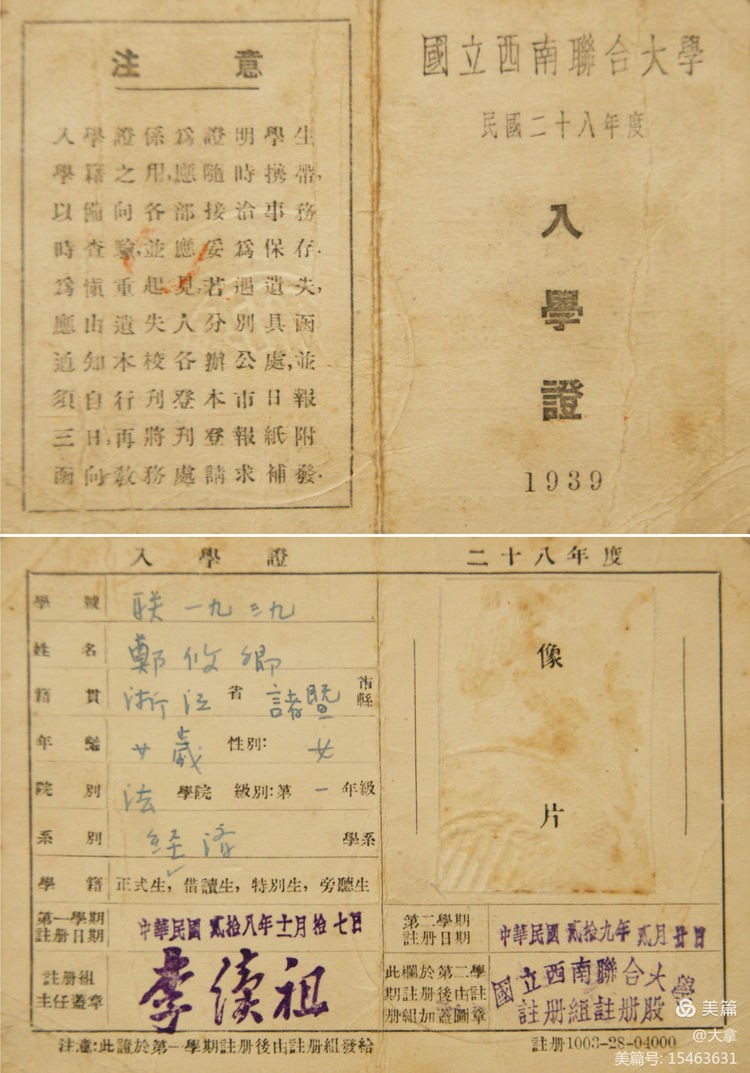 注意
入學證係爲證明學生
學籍之用,應隨時携帶,
以備向各部接洽事務
時查驗,並應妥爲保存.
爲愼重起見,若遇遺失,
應由遺失人分別具函
通知本校各辦公處,並
須自行刊登本市日報
三日,再將刊登報紙附
函向敎務處請求補發.
國立西南聯合大學
民國二十八年度
入
學
證
1939
入學證 二十八年度
學號 联一九三九
姓名 鄭攸卿
籍貫 浙江 省 諸暨 市縣
年齡 廿歲 性別: 女
院別 法 學院 級別:第一年級
系別 経済 學系
學籍 正式生,借讀生,特別生,旁聽生
第一學期註册日期 中華民國 貳拾八年十一月拾七日
註册組主任蓋章 李續祖
像
片
第二學期註册日期 中華民國 貳拾九年貳月廿日
此欄於第二學
期註册後由註
册組加蓋圖章
國立西南聯合大學
註册組註册股
注意:此證於第一學期註册後由註册組發給
註册1003-28-04000
美篇
@大拿
美篇号: 15463631